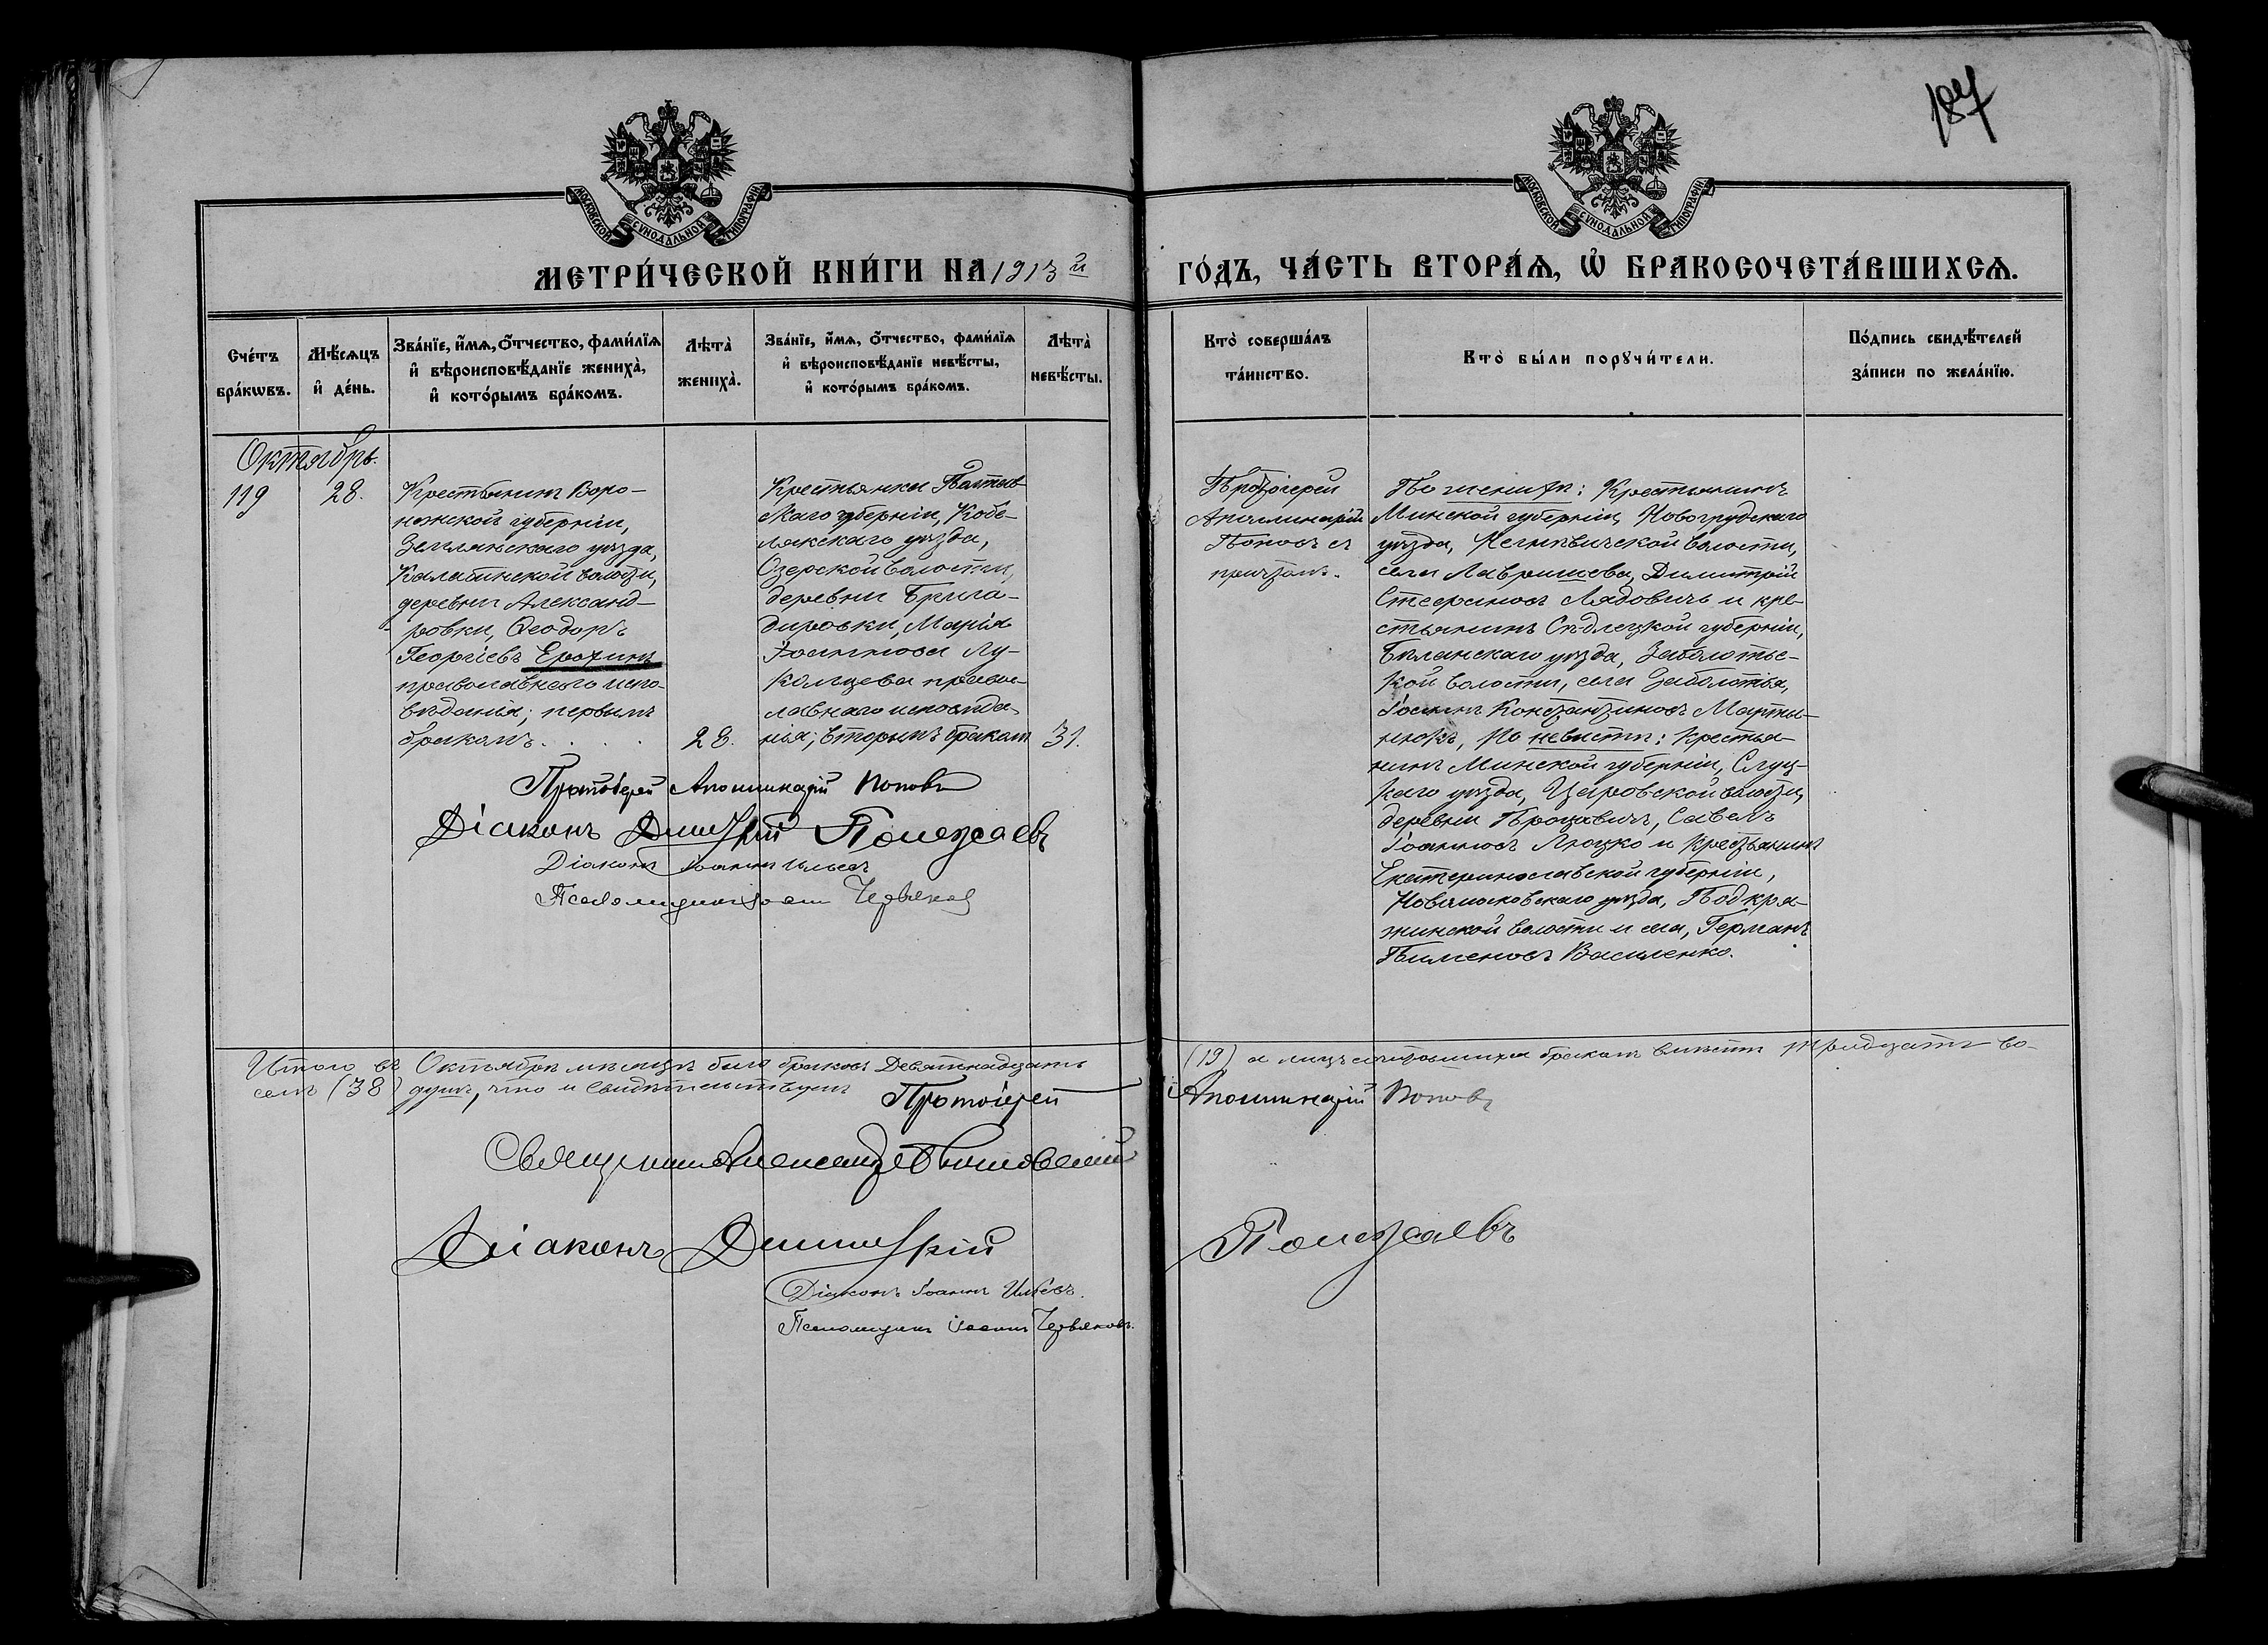 187
МОСКОВСКОЙ СУНОДАЛЬНОЙ ТИПОГРАФІИ
МОСКОВСКОЙ СУНОДАЛЬНОЙ ТИПОГРАФІИ
МЕТРИ́ЧЕСКОЙ КНИ́ГИ НА 1913й
ГО́ДЪ, ЧА́СТЬ ВТОРА́Ѧ, Ѡ҆ БРАКОСОЧЕТА́ВШИХСѦ.
Сче́тъ бра́кѡвъ.
Мѣ́сѧцъ и҆ де́нь.
Зва́нїе, и҆́мѧ, ѻ҆́тчество, фами́лїѧ и҆ вѣроисповѣ́данїе женихà, и҆ кото́рымъ бра́комъ.
Лѣтà женихà.
Зва́нїе, и҆́мѧ, ѻ҆́тчество, фами́лїѧ и҆ вѣроисповѣ́данїе невѣ́сты, и҆ кото́рымъ бра́комъ.
Лѣтà невѣ́сты.
Ктò соверша́лъ та́инство.
Ктò бы́ли порꙋчи́тели.
По́дпись свидѣ́телей за́писи по жела́нїю.
Октябрь.
119
28.
Крестьянинъ Воро-
нежской губерніи,
Землянскаго уѣзда,
Калабинской волости,
деревни Александ-
ровки, Ѳеодоръ
Георгіевъ Ерохинъ
православнаго испо-
вѣданія; первымъ
бракомъ. . . .
28.
Крестьянка Полтав-
скаго губерніи, Кобе-
лякскаго уѣзда,
Озерской волости,
деревни Брига-
дировки, Марія
Іоаннова Лу-
кольцева правос-
лавнаго исповѣда-
нія; вторымъ бракомъ
31.
Протоіерей
Аполлинарій
Поповъ съ
причтомъ.
По женихѣ: Крестьянинъ
Минской губерніи, Новогрудскаго
уѣзда, Негневичской волости,
села Лавришева, Димитрій
Стефановъ Лядовичъ и кре-
стьянинъ Сѣдлецкой губерніи,
Бѣланскаго уѣзда, Заболотьс-
кой волости, села Заболотья,
Іоаннъ Константиновъ Марты-
нюкъ, По невѣстѣ: Крестья-
нинъ Минской губерніи, Слуц-
каго уѣзда, Царовской волости,
деревни Прощавичи, Савелъ
Іоанновъ Люцко и Крестьянинъ
Екатеринославской губерніи,
Новомосковскаго уѣзда, Подкря-
жинской волости и села, Германъ
Пименовъ Василенко.
Протоіерей Аполлинарій Поповъ
Діаконъ Димитрій Полежаевъ
Діаконъ Іоаннъ Ильевъ
Псаломщикъ Іоаннъ Червяковъ
Итого въ Октябрѣ мѣсяцѣ было браковъ Девятнадцать (19) а лицъ сочетавшихся бракомъ вмѣстѣ тридцать во-
семь (38) душъ, что и свидѣтельствуемъ Протоіерей Аполлинарій Поповъ
Священникъ Александръ
Діаконъ Димитрій Полежаевъ
Діаконъ Іоаннъ Ильевъ.
Псаломщикъ Іоаннъ Червяковъ.